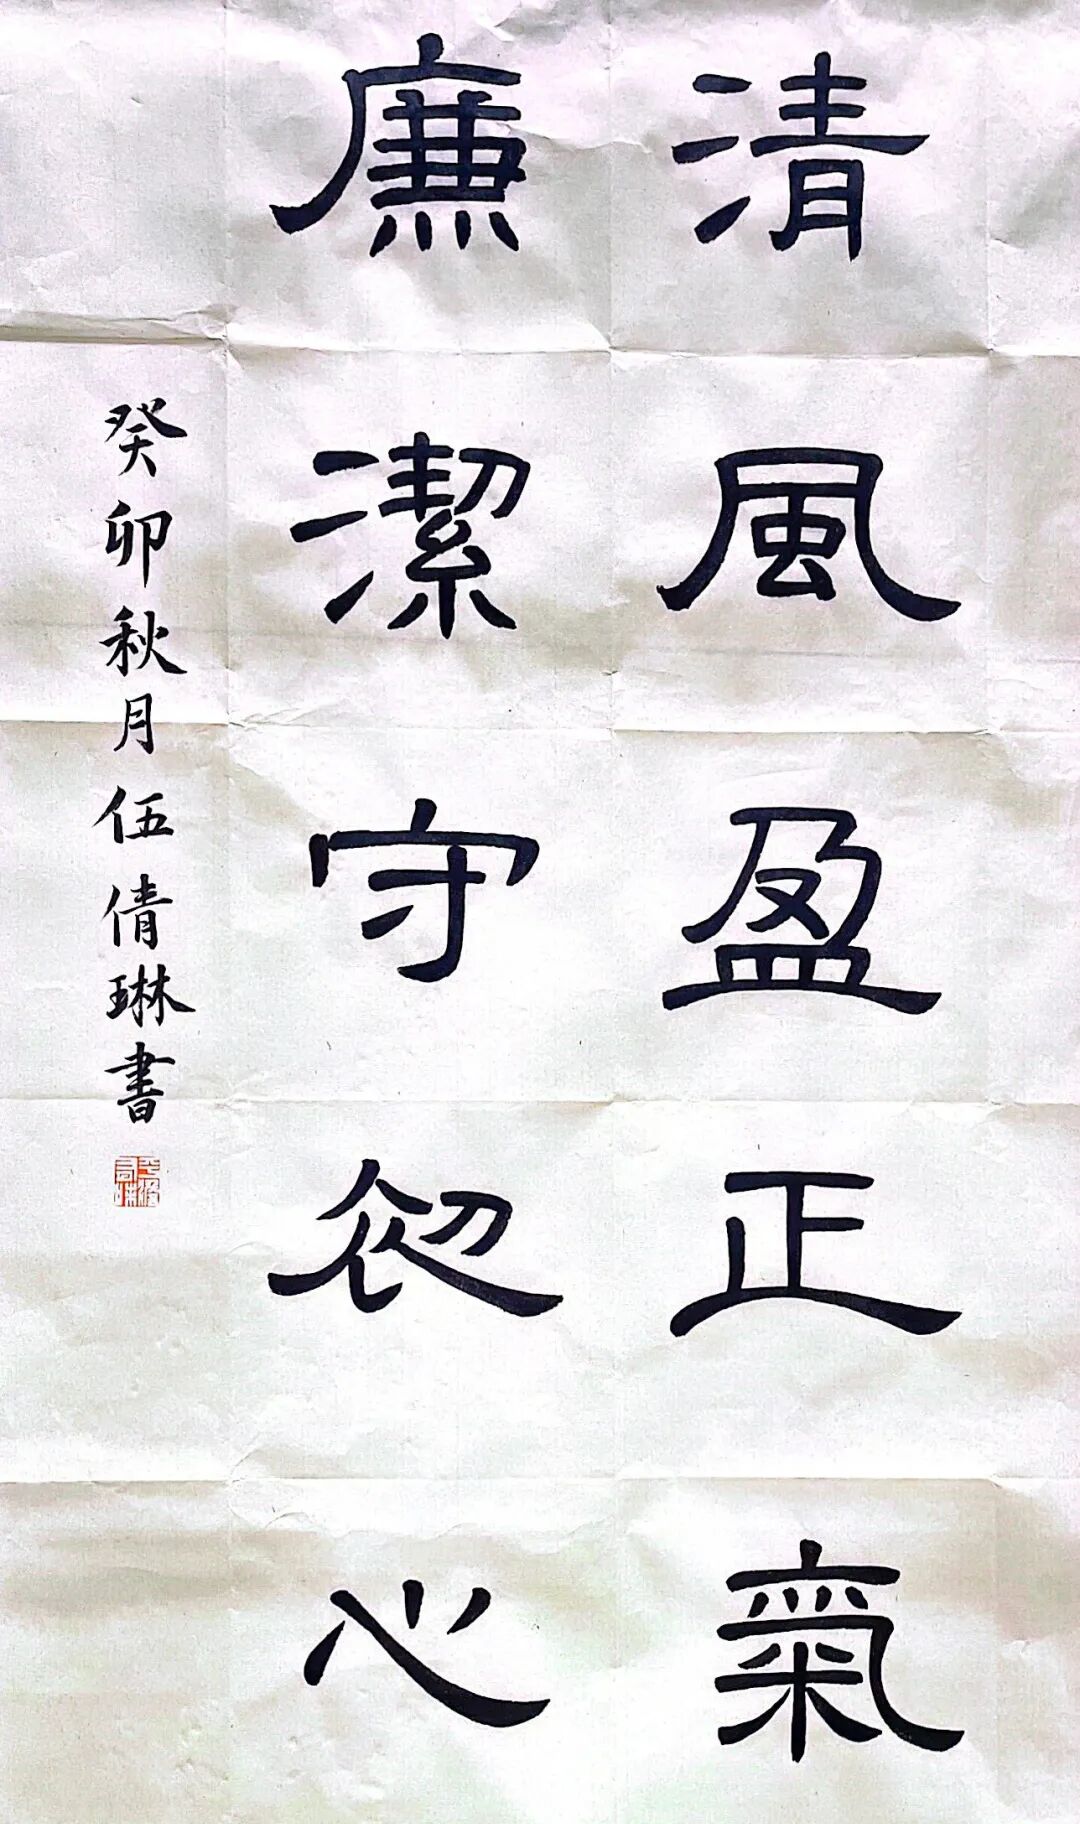 清風盈正氣
廉潔守初心
癸卯秋月伍倩琳書